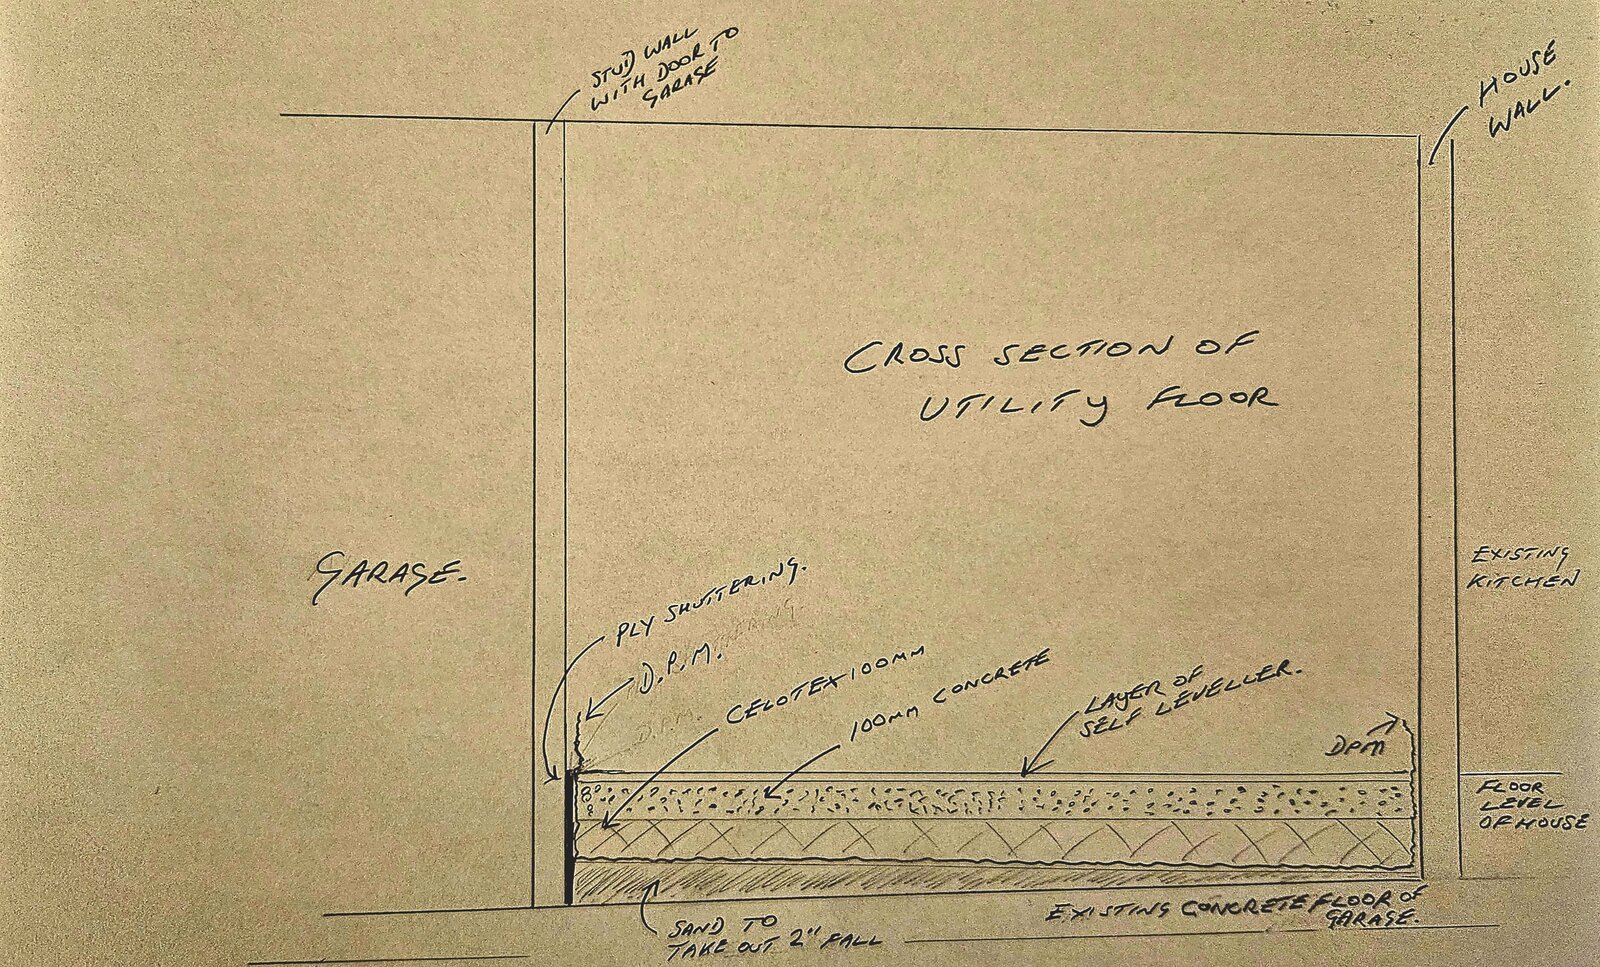 STUD WALL
WITH DOOR TO
GARAGE
HOUSE
WALL.
CROSS SECTION OF
UTILITY FLOOR
GARAGE.
EXISTING
KITCHEN
PLY SHUTTERING.
D.P.M.
CELOTEX 100MM
100MM CONCRETE
LAYER OF
SELF LEVELLER.
D.P.M.
DPM
FLOOR
LEVEL
OF HOUSE
SAND TO
TAKE OUT 2" FALL
EXISTING CONCRETE FLOOR OF
GARAGE.